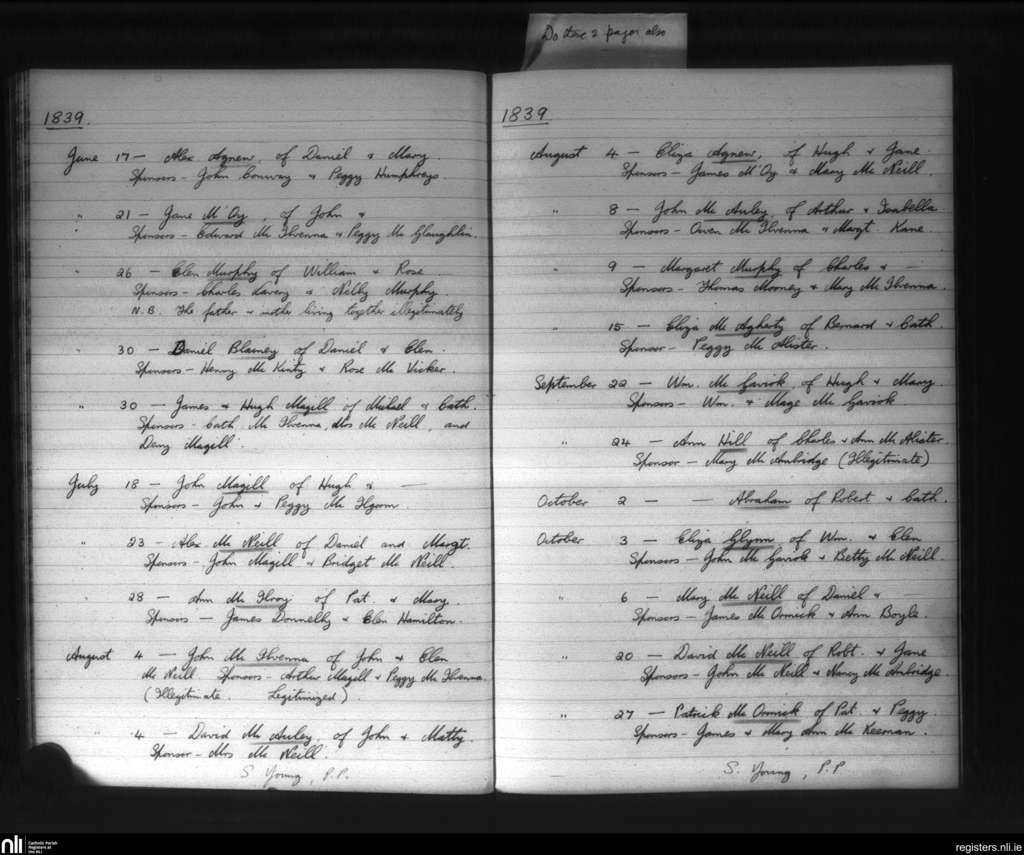 Do these 2 pages also
1839.
June 17 — Alex Agnew, of Daniel & Mary.
Sponsors - John Conway & Peggy Humphreys.
" 21 — Jane M'Oy, of John &
Sponsors - Edward Mc Ilvenna & Peggy Mc Glaughlin.
" 26 — Elen Murphy of William & Rose
Sponsors - Charles Lavery & Nelly Murphy
N.B. The father & mother living together illegitimately
" 30 — Daniel Blainey of Daniel & Elen.
Sponsors - Henry Mc Kinty & Rose Mc Vicker.
" 30 — James & Hugh Magill of Michael & Cath.
Sponsors - Cath Mc Ilvenna, Mrs Mc Neill, and
Deny Magill.
July 18 — John Magill of Hugh & —
Sponsors - John & Peggy Mc
" 23 — Alex Mc Neill of Daniel and Margt.
Sponsors - John Magill & Bridget Mc Neill.
" 28 — Ann Mc Ilroy of Pat. & Mary.
Sponsors — James Donnelly & Elen Hamilton.
August 4 — John Mc Ilvenna of John & Elen
Mc Neill. Sponsors - Arthur Magill & Peggy Mc Ilvenna
(Illegitimate. Legitimized).
" 4 — David Mc Auley, of John & Matty.
Sponsor - Mrs Mc Neill.
S. Young, P.P.
1839.
August 4 — Eliza Agnew, of Hugh & Jane.
Sponsors - James M'Oy & Mary Mc Neill.
" 8 — John Mc Auley, of Arthur & Isabella.
Sponsors - Owen Mc Ilvenna & Margt. Kane.
" 9 — Margaret Murphy of Charles & —
Sponsors - Thomas Mooney & Mary Mc Ilvenna.
" 15 — Eliza Mc Agherty of Bernard & Cath.
Sponsor - Peggy Mc Alister.
September 22 — Wm. Mc Gavick, of Hugh & Mary.
Sponsors - Wm. & Mage Mc Gavick
" 24 — Ann Hill of Charles & Ann Mc Alister
Sponsor — Mary Mc Ambridge (Illegitimate)
October 2 — — Abraham of Robert & Cath.
October 3 — Eliza Glynn of Wm. & Elen
Sponsors - John Mc Gavick & Betty Mc Neill.
" 6 — Mary Mc Neill of Daniel &
Sponsors - James Mc Ormick & Ann Boyle.
" 20 — David Mc Neill of Robt. & Jane
Sponsors - John Mc Neill & Nancy Mc Ambridge
" 27 — Patrick Mc Ormick of Pat. & Peggy.
Sponsors - James & Mary Ann Mc Keenan.
S. Young, P.P.
nli Catholic Parish
Registers at
the NLI
registers.nli.ie